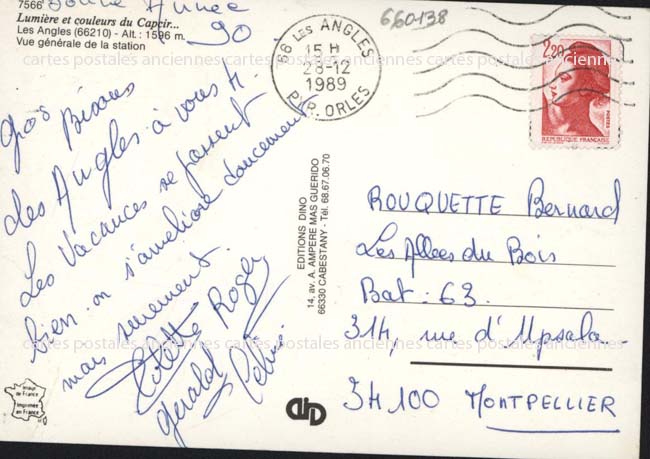 7566
Bonne Année
90
Lumière et couleurs du Capcir...
Les Angles (66210) - Alt. : 1596 m.
Vue générale de la station
gros Bisous
des Angles à vous 4.
Les Vacances se passent
bien. on s'améliore doucement
mais surement.
Colette Roger
gerald
660138
66 LES ANGLES
15 H
28-12
1989
PYR. ORLES
2,20
POSTES
REPUBLIQUE FRANÇAISE
cartes postales anciennes cartes postales anciennes cartes postales anciennes
EDITIONS DINO
14, av. A. AMPERE MAS GUERIDO
66330 CABESTANY - Tél. 68.67.06.70
ROUQUETTE Bernard
Les Allees du Bois
Bat : 63.
314, rue d'Upsala.
34100 MONTPELLIER
cartes postales anciennes cartes postales anciennes cartes postales anciennes
Image
de France
Imprimée
en France